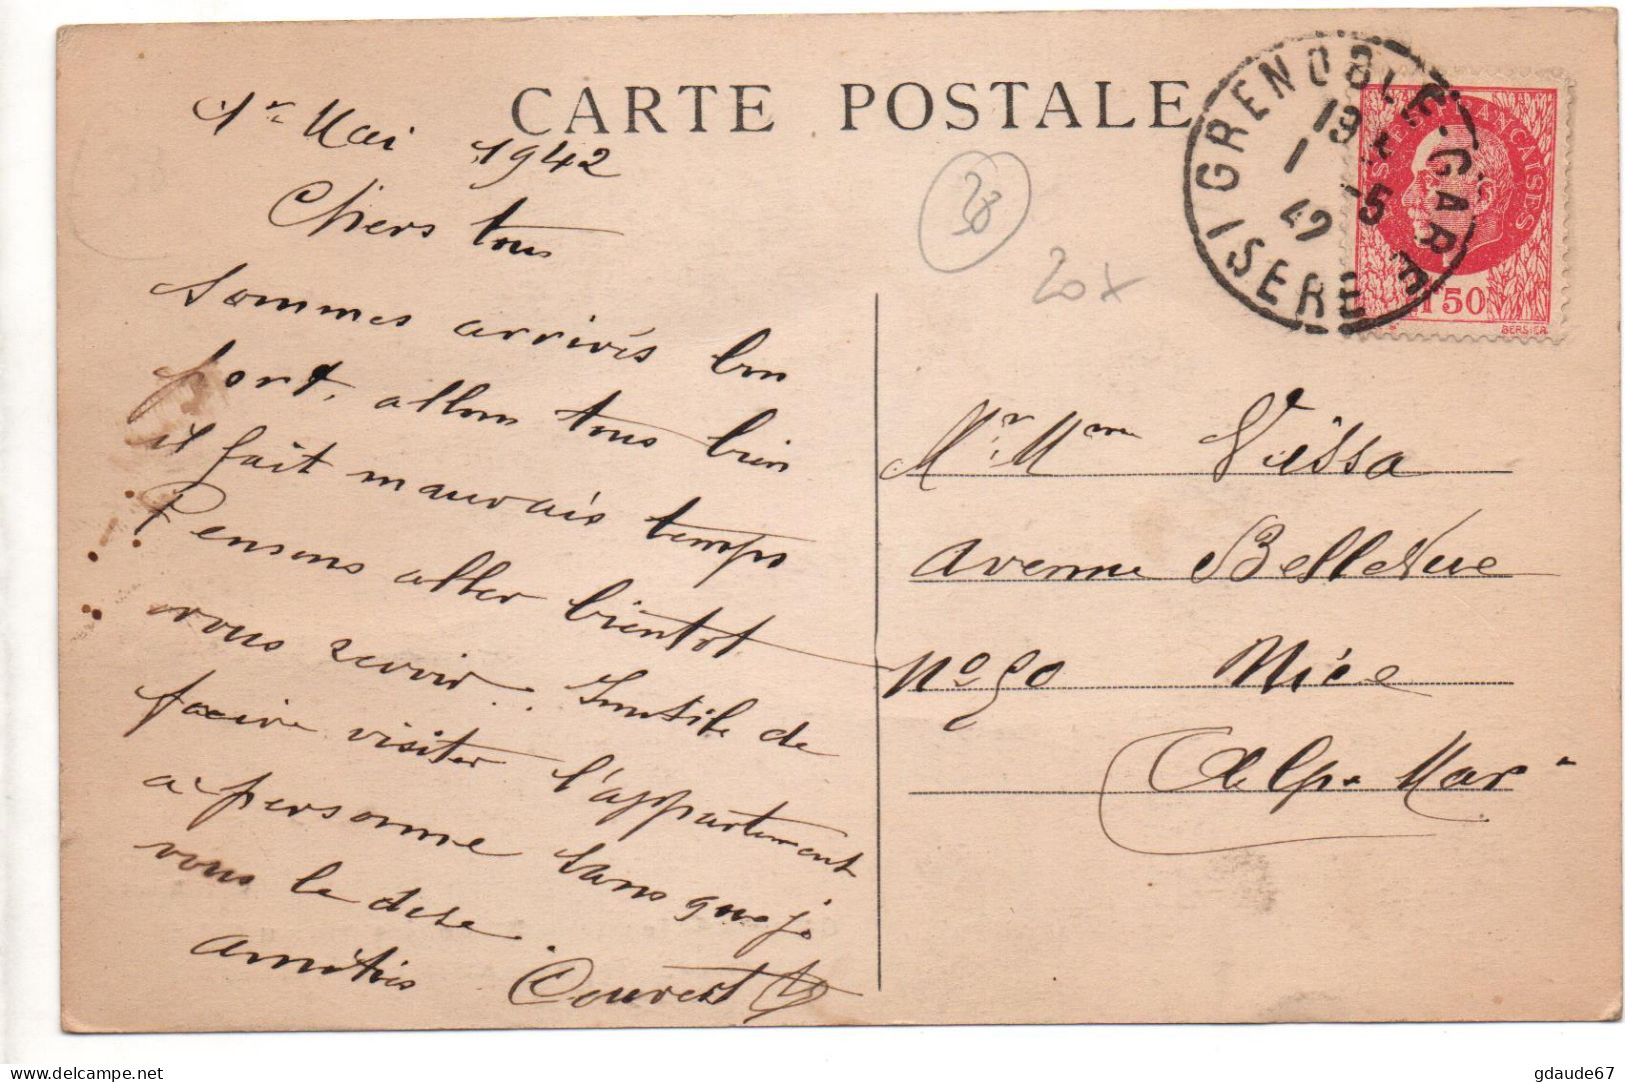 CARTE POSTALE
1er Mai 1942
Chers tous
Sommes arrivés bon
port, allons tous bien
il fait mauvais temps
Pensons aller bientot
vous revoir. Inutile de
faire visiter l'appartement
a personne sans que je
vous le dise.
amitiés Couvert
38
20x
GRENOBLE-GARE
19
1 -5
42
ISERE
POSTES FRANÇAISES
1F50
BERSIER
Mr Mme Vissa
Avenue BelleVue
No 50 Nice
Alp. Mar.
delcampe.net
gdaude67